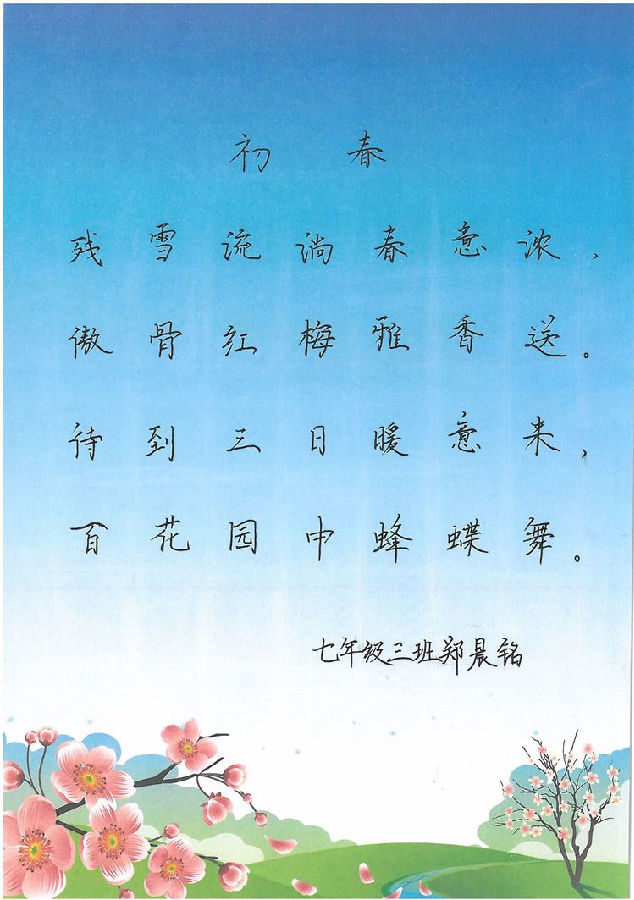 初春
残雪流淌春意浓，
傲骨红梅雅香送。
待到三日暖意来，
百花园中蜂蝶舞。
七年级三班郑晨铭